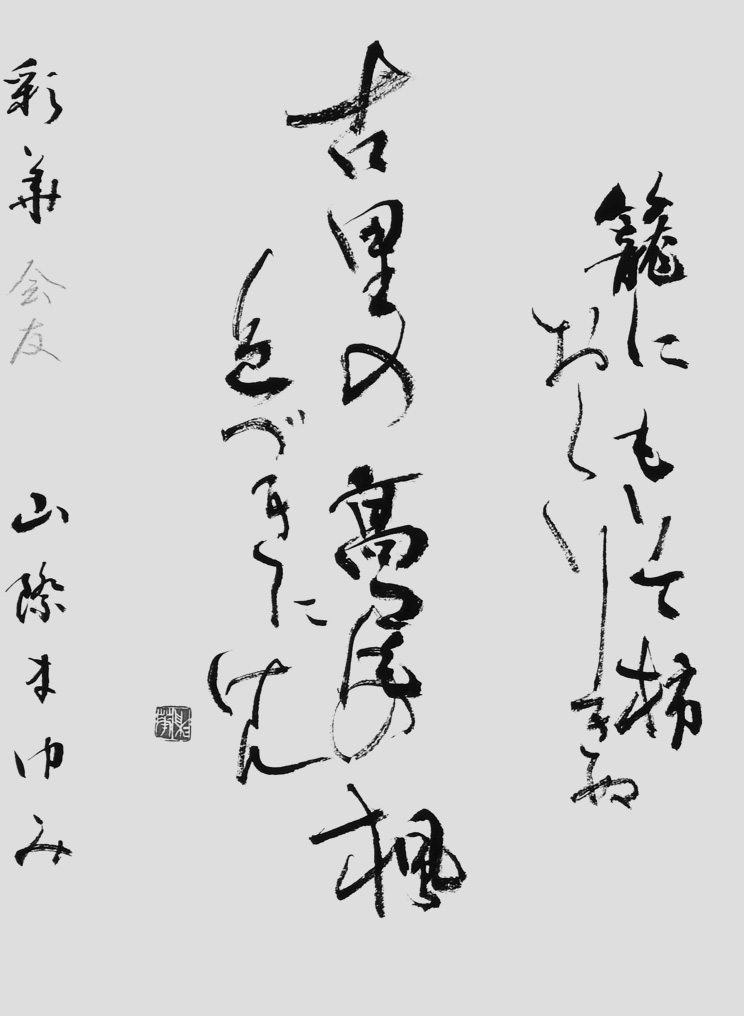 籠にもりて柿
おくりきぬ
古里の高尾の楓
色づきに
けん
彩華 会友 山際まゆみ